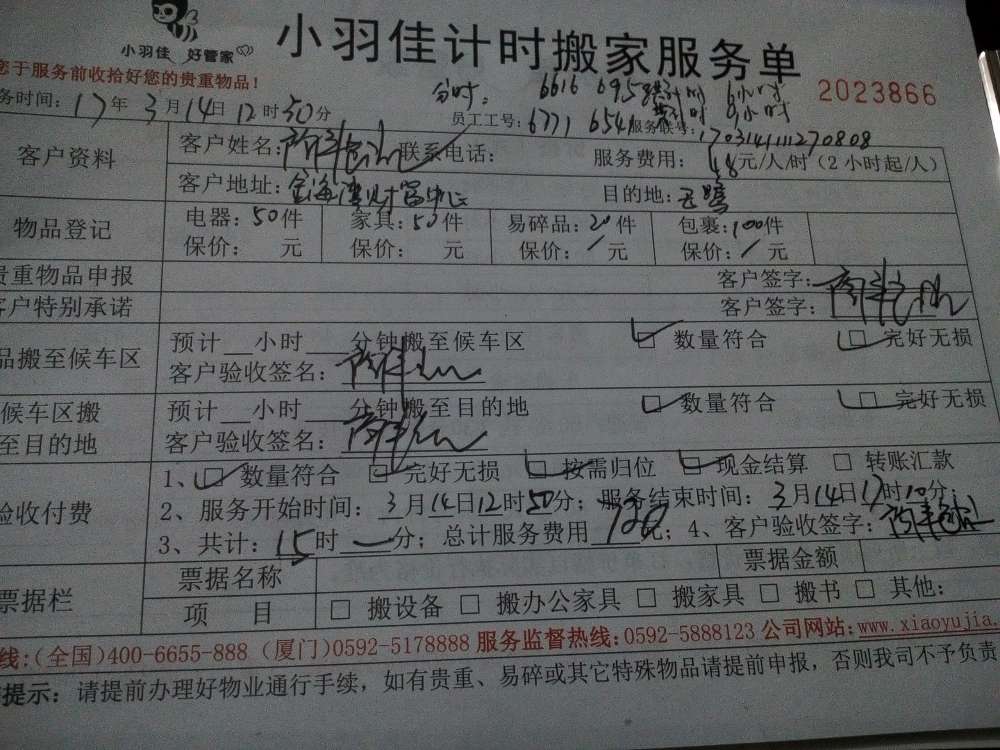 小羽佳 好管家
小羽佳计时搬家服务单
您于服务前收拾好您的贵重物品！
2023866
务时间：17年3月14日12时50分
6616 6958 6小时
员工工号：6771 6541 服务联号：170314111270808
客户资料
客户姓名： 联系电话： 服务费用：48元/人/时（2小时起/人）
客户地址：金海湾财富中心 目的地：
物品登记
电器：50件 家具：50件 易碎品：20件 包裹：100件
保价： 元 保价： 元 保价：/元 保价：/元
贵重物品申报 客户签字：
客户特别承诺 客户签字：
品搬至候车区
预计__小时___分钟搬至候车区 □ 数量符合 □ 完好无损
客户验收签名：
候车区搬至目的地
预计__小时___分钟搬至目的地 □ 数量符合 □ 完好无损
客户验收签名：
验收付费
1、□ 数量符合 □ 完好无损 □ 按需归位 □ 现金结算 □ 转账汇款
2、服务开始时间：3月14日12时50分；服务结束时间：3月14日17时10分
3、共计：15时一分；总计服务费用720元；4、客户验收签字：
票据栏
票据名称 票据金额
项 目 □ 搬设备 □ 搬办公家具 □ 搬家具 □ 搬书 □ 其他：
线：(全国)400-6655-888（厦门)0592-5178888 服务监督热线：0592-5888123 公司网站：www.xiaoyujia.
提示：请提前办理好物业通行手续，如有贵重、易碎或其它特殊物品请提前申报，否则我司不予负责